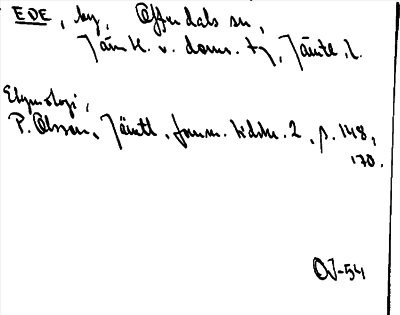 EDE, by, Offerdals sn,
Jämtl. v. doms. tg, Jämtl. l.
Etymologi,
P. Olsson, Jämtl. fornm. tidskr. 2, s. 148,
170.
OJ-54